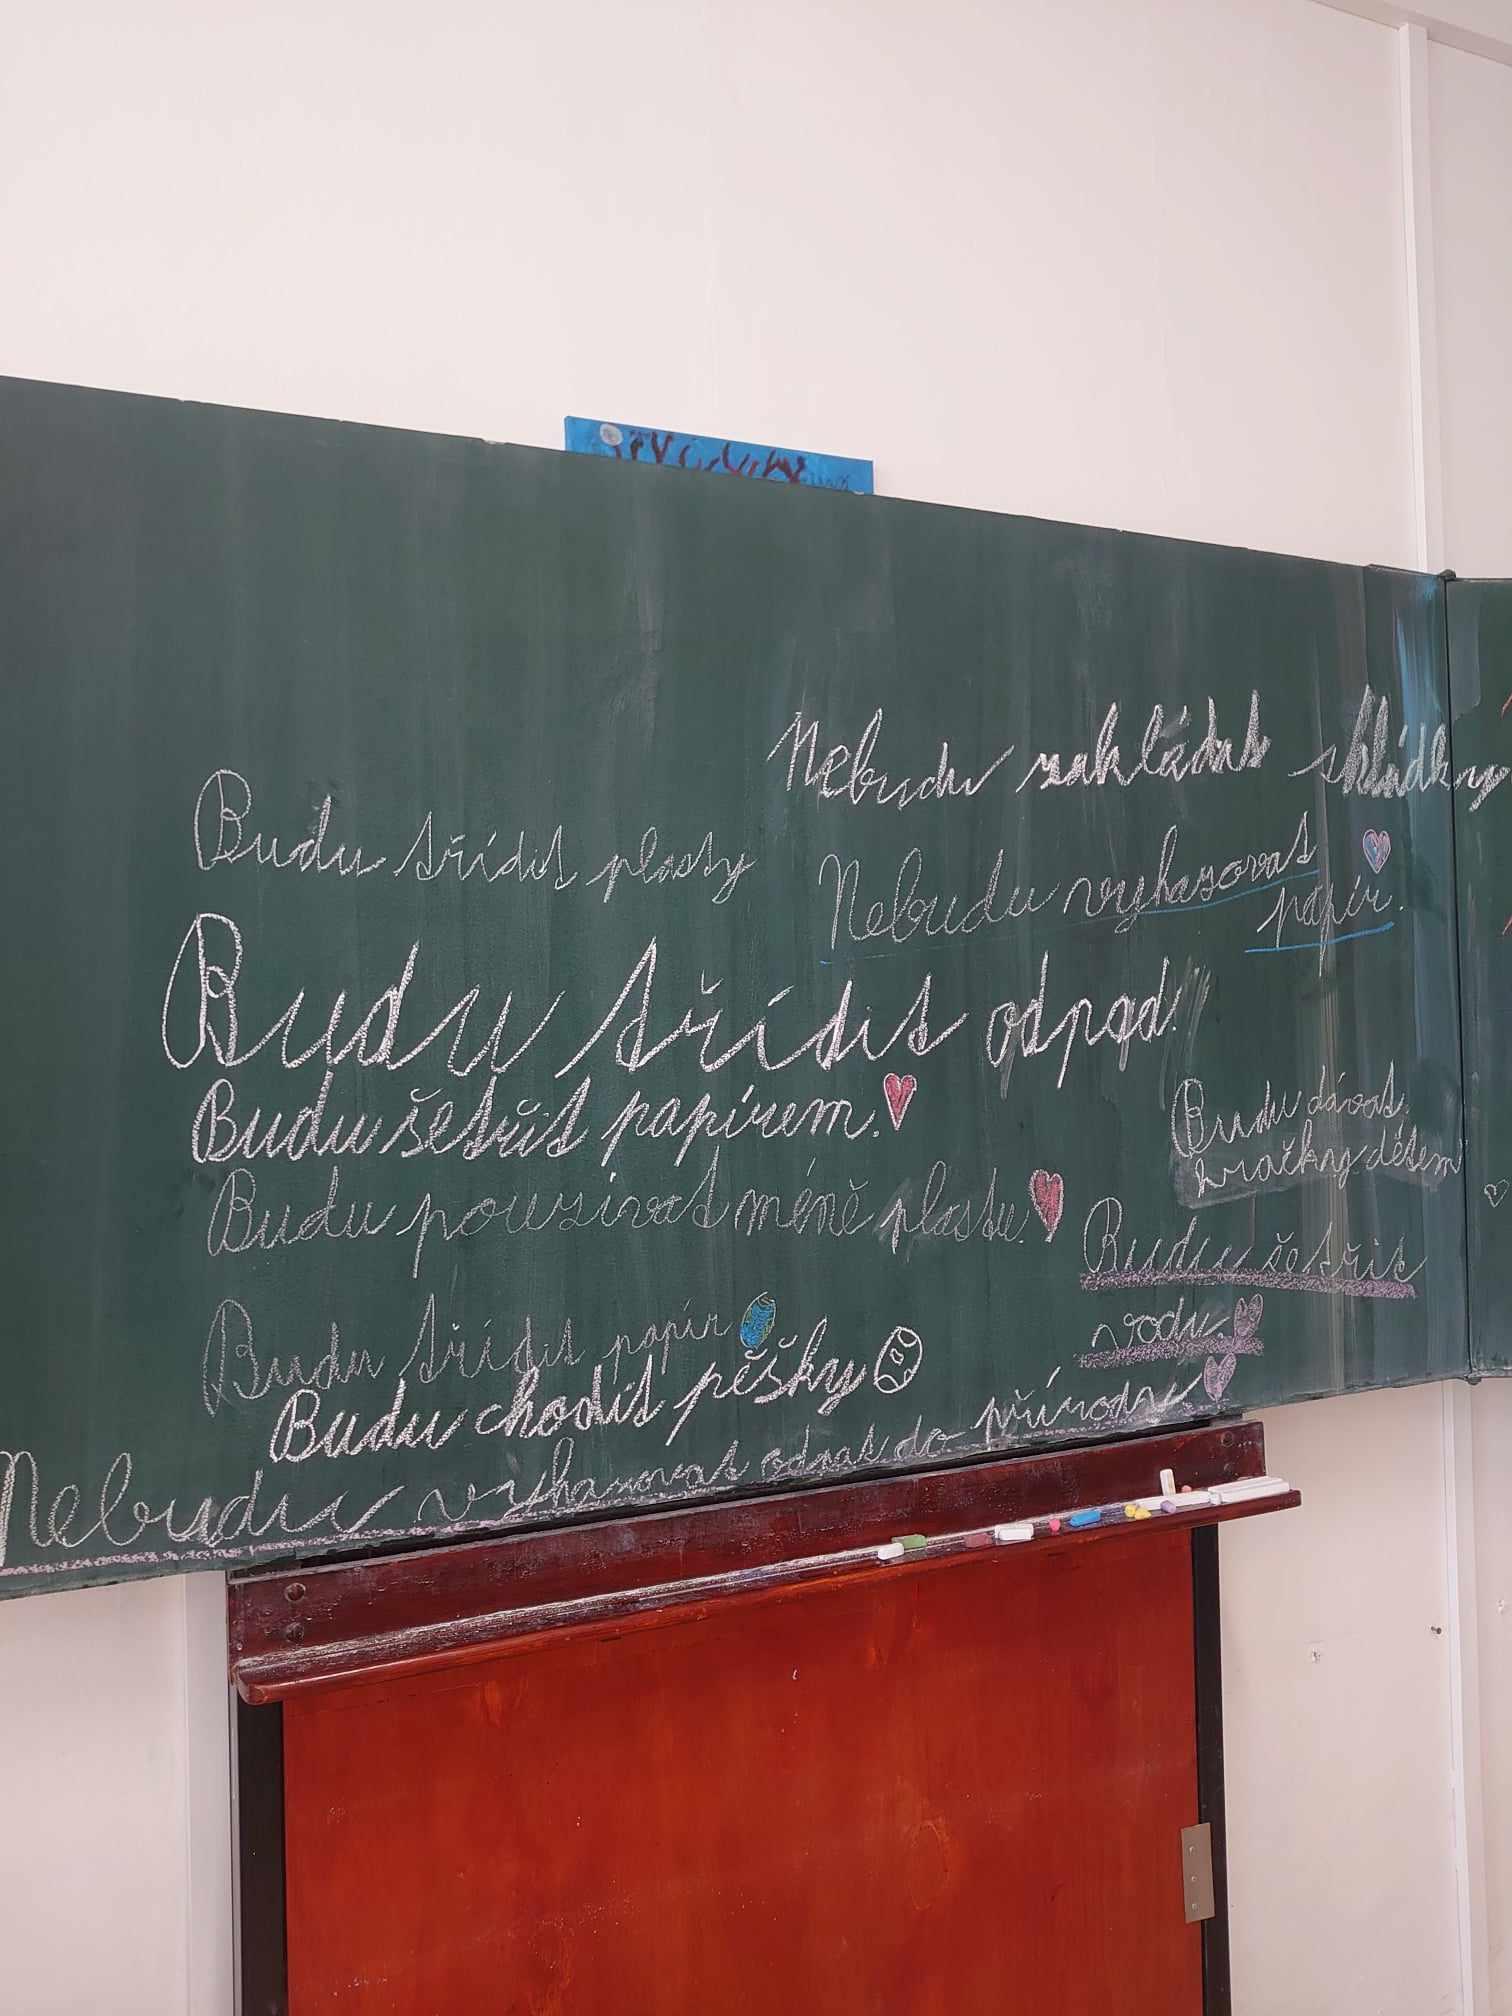 Nebudu zakládat skládky
Budu třídit plasty
Nebudu vyhazovat
papír.
Budu třídit odpad!
Budu šetřit papírem.
Budu dávat
hračky dětem
Budu pouzivat méně plastu.
Budu šetřit
vodu.
Budu třídit papír
Budu chodit pěšky
Nebudu vyhazovat do přírody